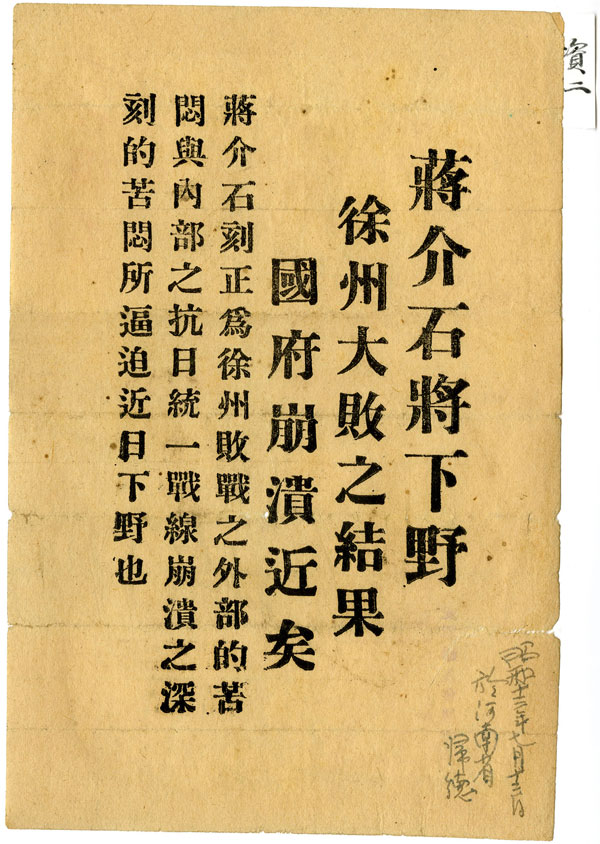 資二
蔣介石將下野
徐州大敗之結果
國府崩潰近矣
蔣介石刻正爲徐州敗戰之外部的苦
悶與內部之抗日統一戰線崩潰之深
刻的苦悶所逼迫近日下野也
昭和十三年七月
於河南省
帰德